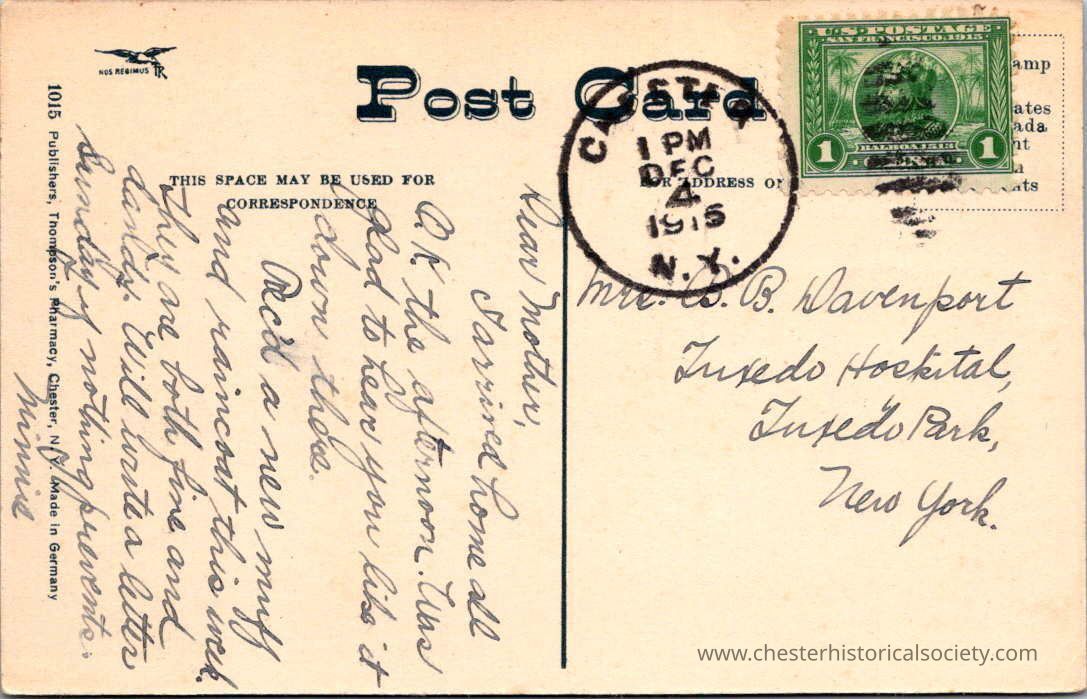 NOS REGIMUS TR
Post Card
THIS SPACE MAY BE USED FOR
CORRESPONDENCE
FOR ADDRESS O
CHESTER
1 PM
DEC
4
1915
N.Y.
U.S. POSTAGE
SAN FRANCISCO 1915
BALBOA 1513
1 1
amp
ates
ada
nt
ts
Dear Mother,
I arrived home all
O.K. the afternoon. Was
glad to hear you like it
down there.
Rec'd a new muff
and raincoat this week.
They are both fine and
dandy. Will write a letter
Sunday if nothing prevents.
Minnie
Mrs. B. B. Davenport
Tuxedo Hoskital,
Tuxedo Park,
New York.
1015 Publishers, Thompson's Pharmacy, Chester, N.Y. Made in Germany
www.chesterhistoricalsociety.com